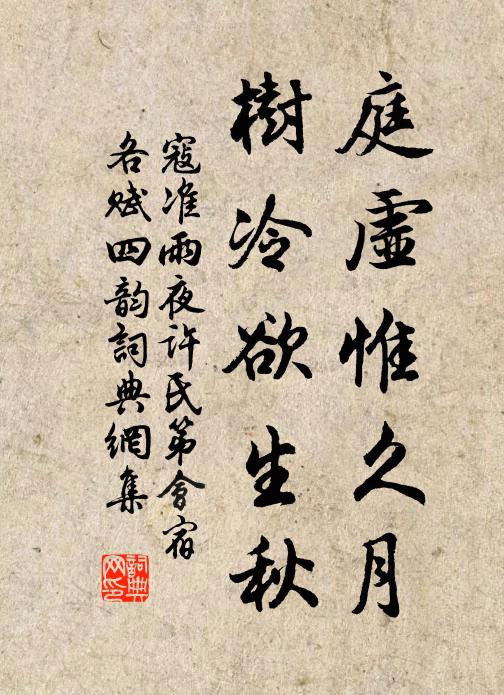 庭虛惟久月
樹冷欲生秋
寇準雨夜許氏第會宿
各賦四韵詞典網集
詞典網印